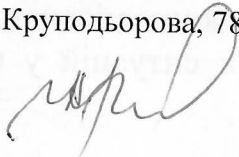 Круподьорова, 78